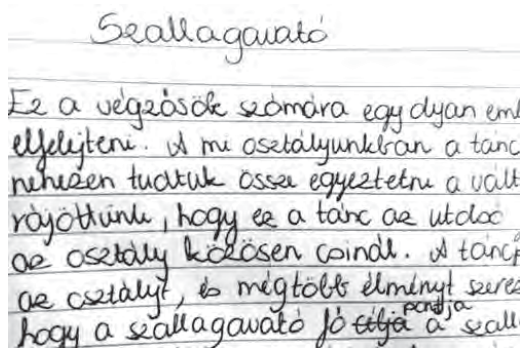 Szallagavató
Ez a végzősök számára egy olyan eml
elfelejteni. A mi osztályunkban a tánc
nehezen tudtuk össze egyeztetni a vált
rájöttünk, hogy ez a tánc az utolsó
az osztály közösen csinál. A táncp
az osztályt, és mégtöbb élményt szerez
hogy a szallagavató fó pontja a szall